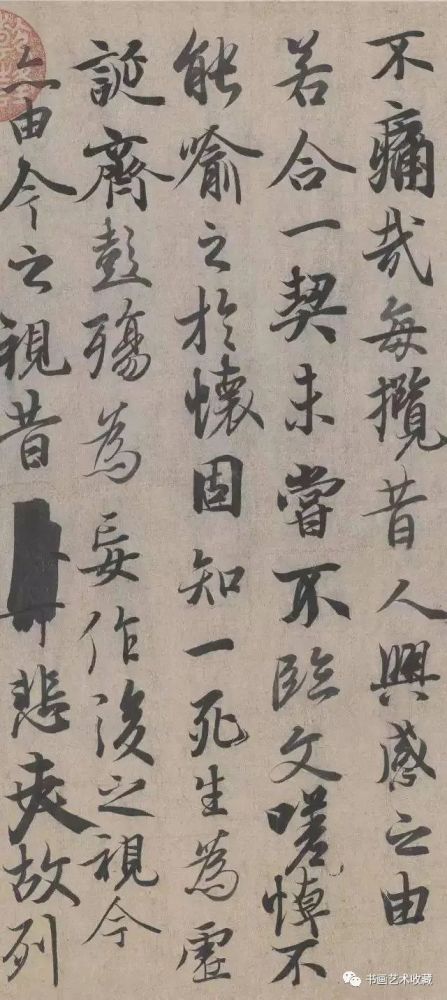 不痛哉每攬昔人興感之由
若合一契未嘗不臨文嗟悼不
能喻之於懷固知一死生為虛
誕齊彭殤為妄作後之視今
亦由今之視昔悲夫故列
书画艺术收藏